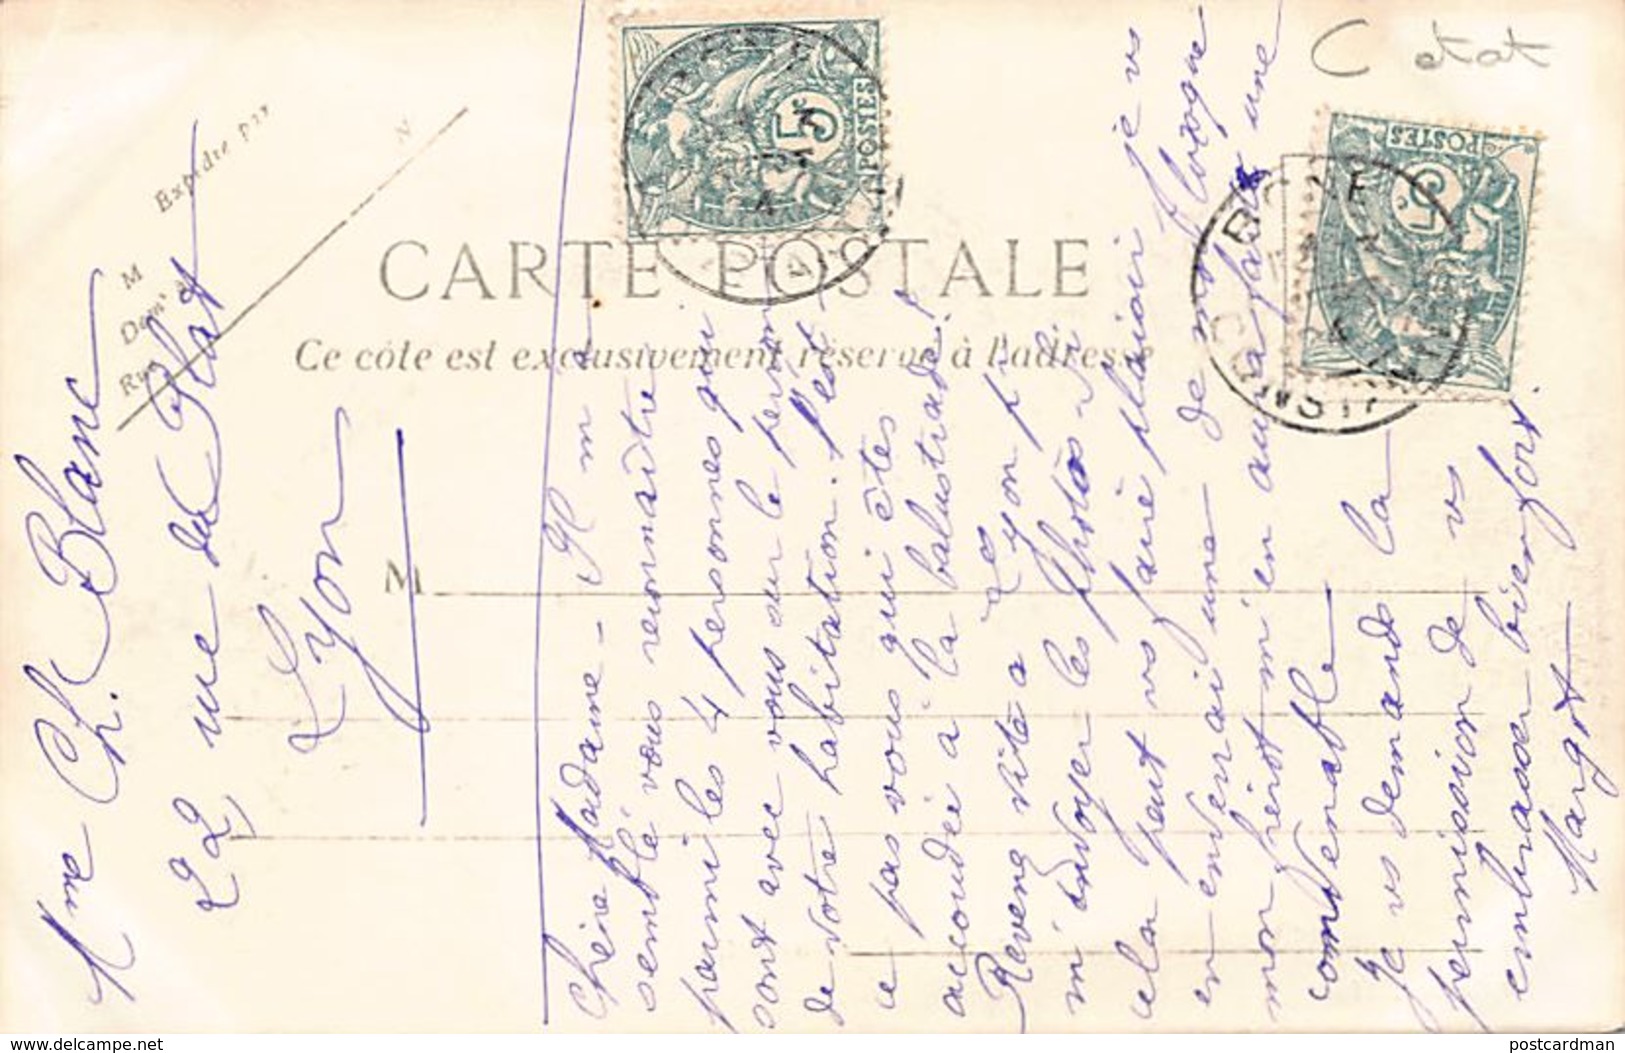 C état
Expédié par
M
Dem^t à
Rue
N
5c
POSTES
5c
POSTES
BONE
CONST
CARTE POSTALE
Ce côté est exclusivement réservé à l'adresse
M
Mme Ch. Blanc
22 rue du Plat
Lyon
Chère Madame - Il m'a
semblé vous reconnaître
parmi les 4 personnes qui
sont avec vous sur le perron
de votre habitation. N'est
ce pas vous qui êtes
accoudée à la balustrade!
Revenez vite à Lyon pr
m'envoyer les photos. Si
cela peut vs faire plaisir je vs
en enverrai une de moi lorsque
mon frère m'en aura fait une
convenable
Je vs demande la
permission de vs
embrasser bien fort.
Margot
www.delcampe.net
postcardman